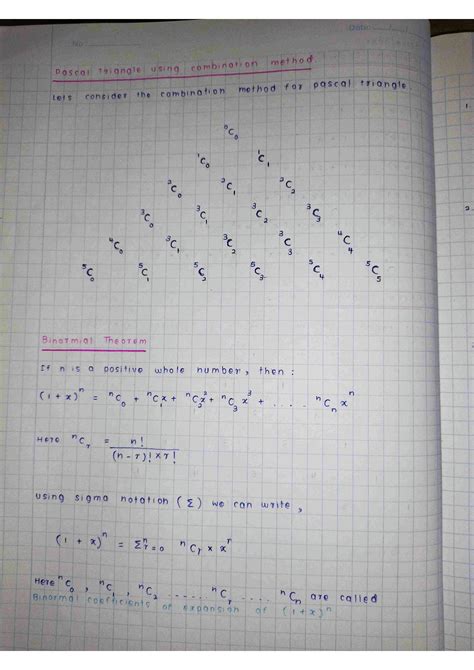 Date:
No:
Pascal Triangle using combination method
Lets consider the combination method for pascal triangle.
⁰C₀
¹C₀ ¹C₁
²C₀ ²C₁ ²C₂
³C₀ ³C₁ ³C₂ ³C₃
⁴C₀ ³C₁ ³C₂ ³C₃ ⁴C₄
⁵C₀ ⁵C₁ ⁵C₂ ⁵C₃ ⁵C₄ ⁵C₅
Binormial Theorem
If n is a positive whole number, then :
(1 + x)ⁿ = ⁿC₀ + ⁿC₁x + ⁿC₂x² + ⁿC₃x³ + .... ⁿCₙxⁿ
Here ⁿCᵣ = n! / (n - r)! × r!
Using sigma notation (Σ) we can write,
(1 + x)ⁿ = Σⁿᵣ₌₀ ⁿCᵣ × xʳ
Here ⁿC₀, ⁿC₁, ⁿC₂ ...... ⁿCᵣ .... ⁿCₙ are called
Binormal coefficients of expansion of (1+x)ⁿ
1.
2.